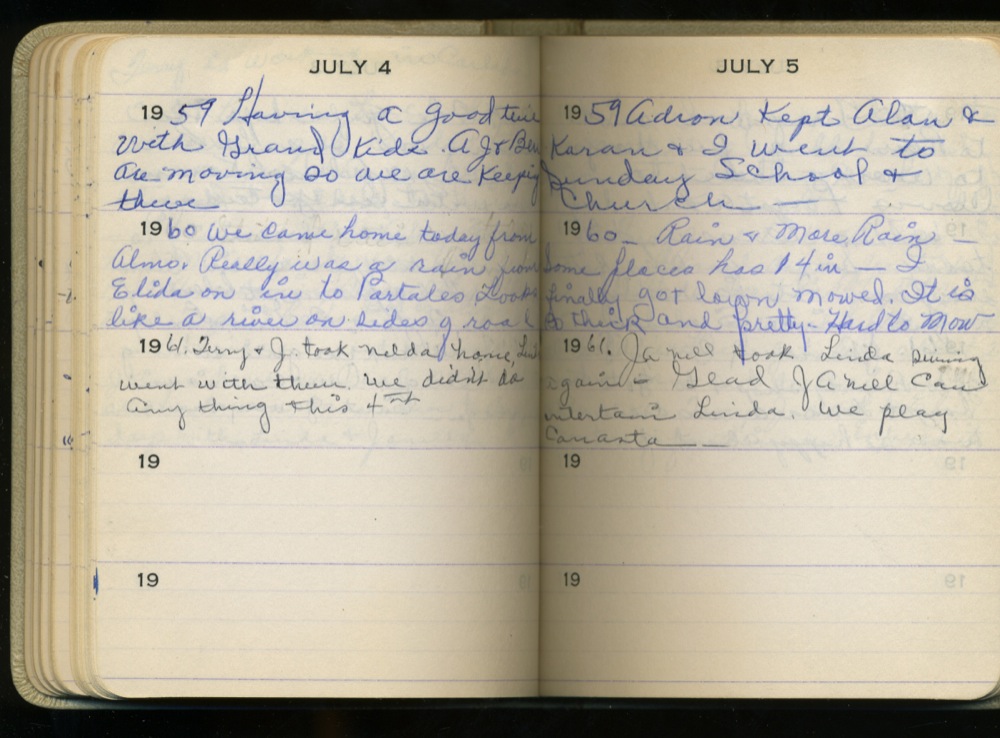 JULY 4
1959 Having a good time
with Grand Kids. AJ & Ben
are moving so we are keeping
them
1960 We came home today from
Almo. Really was a rain from
Elida on in to Portales Looks
like a river on sides of road
1961. Terry & J. took Nelda home,
went with them. We didn't do
any thing this 4th
19
19
JULY 5
1959 Adron Kept Alan &
Karan & I went to
Sunday School &
Church —
1960 — Rain & More Rain —
Some places has 14 in — I
finally got lawn mowed. It is
so thick and pretty - Hard to Mow
1961. Ja nell took Linda
again - Glad JAnell Can
entertain Linda. We play
Canasta —
19
19